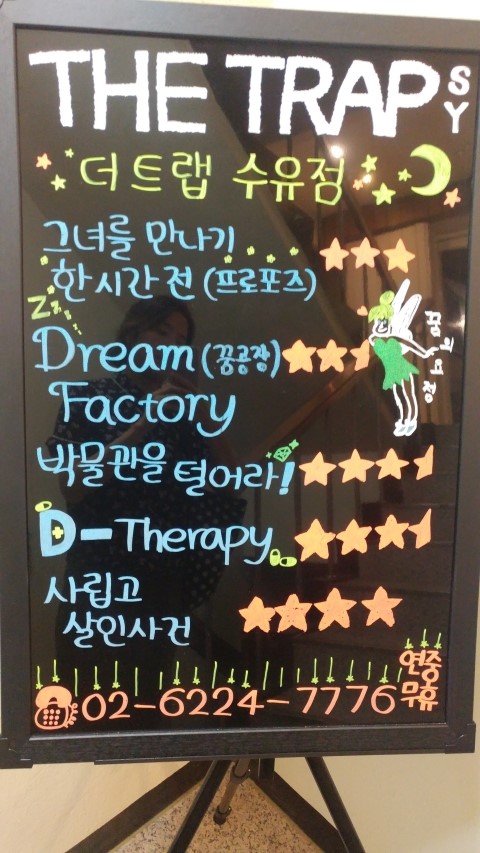 THE TRAP SY
더트랩 수유점
그녀를 만나기
한시간 전 (프로포즈)
Zzzz
Dream (꿈공장)
Factory
꿈의요정
박물관을 털어라!
D-Therapy
사립고
살인사건
02-6224-7776
연중
무휴